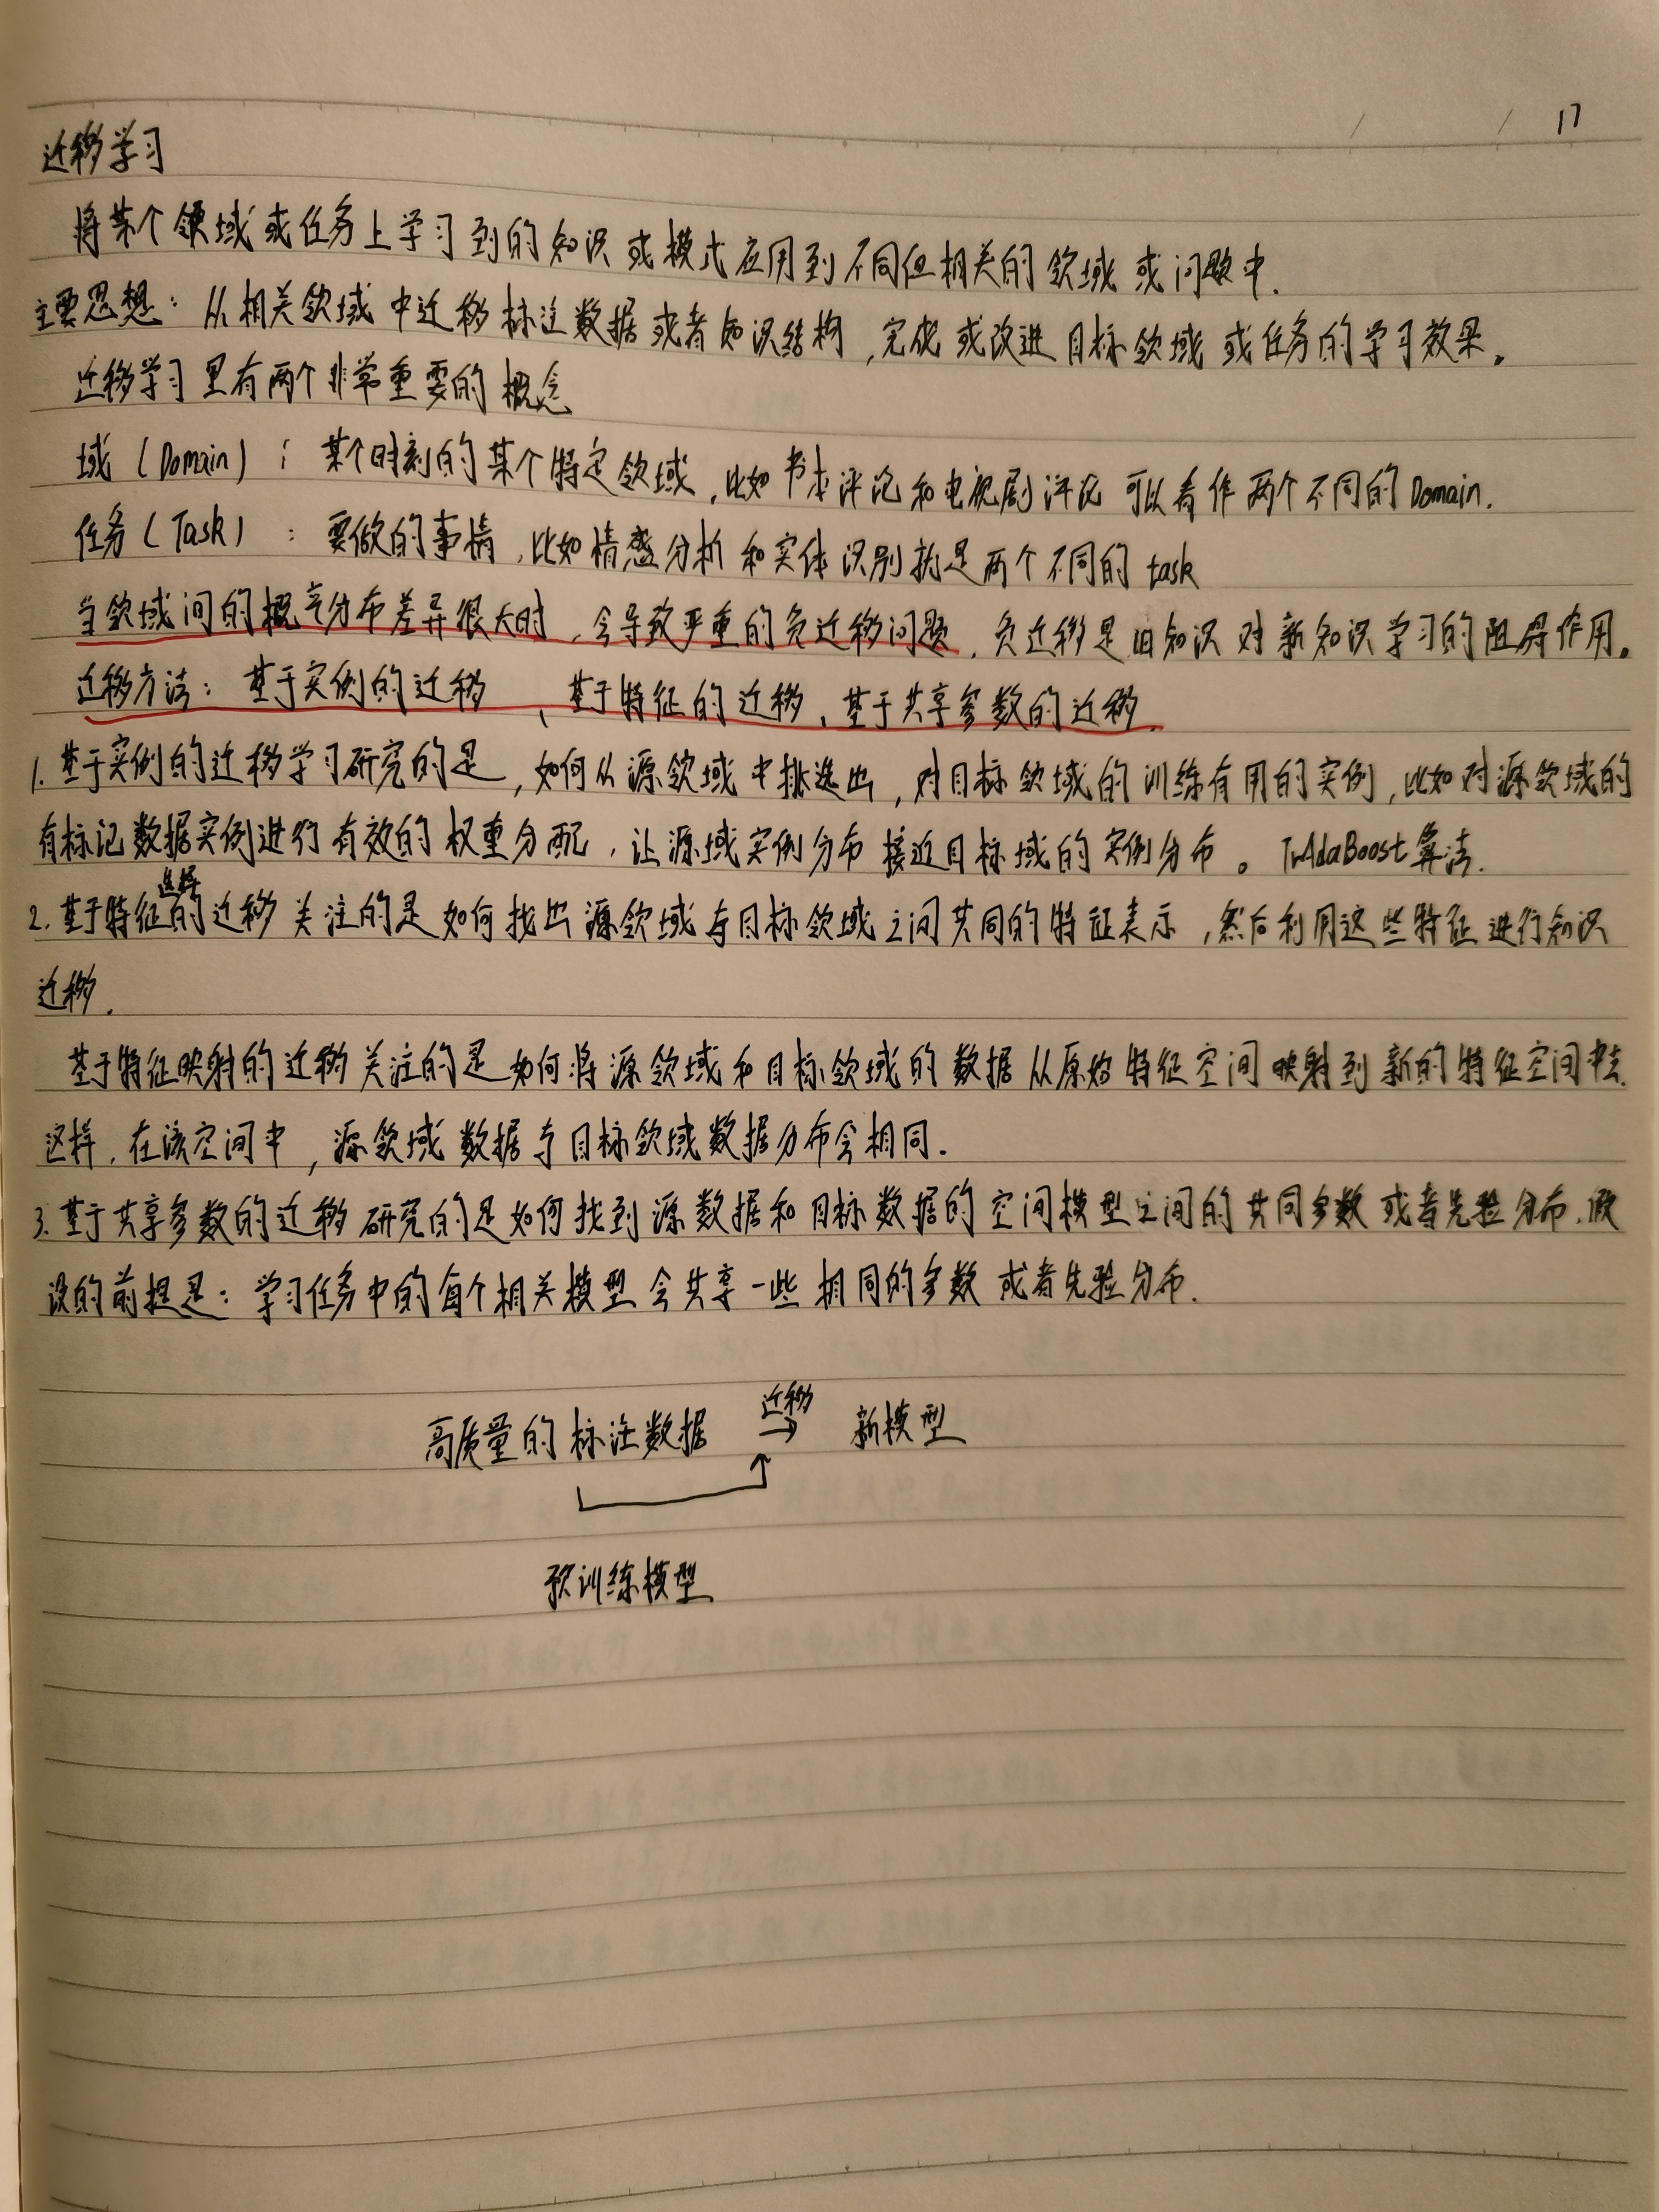 17
迁移学习
将某个领域或任务上学习到的知识或模式应用到不同但相关的领域或问题中.
主要思想：从相关领域中迁移标注数据或者知识结构,完成或改进目标领域或任务的学习效果。
迁移学习里有两个非常重要的概念
域(Domain)：某个时刻的某个特定领域,比如书本评论和电视剧评论可以看作两个不同的Domain.
任务(Task)：要做的事情,比如情感分析和实体识别就是两个不同的task
当领域间的概率分布差异很大时,会导致严重的负迁移问题,负迁移是旧知识对新知识学习的阻碍作用。
迁移方法：基于实例的迁移、基于特征的迁移、基于共享参数的迁移.
1.基于实例的迁移学习研究的是,如何从源领域中挑选出,对目标领域的训练有用的实例,比如对源领域的
有标记数据实例进行有效的权重分配,让源域实例分布接近目标域的实例分布。TrAdaBoost算法.
2.基于特征选择的迁移关注的是如何找出源领域与目标领域之间共同的特征表示,然后利用这些特征进行知识
迁移.
基于特征映射的迁移关注的是如何将源领域和目标领域的数据从原始特征空间映射到新的特征空间中去.
这样,在该空间中,源领域数据与目标领域数据分布会相同.
3.基于共享参数的迁移研究的是如何找到源数据和目标数据的空间模型之间的共同参数或者先验分布.假
设的前提是：学习任务中的每个相关模型会共享一些相同的参数或者先验分布.
高质量的标注数据 迁移→ 新模型
预训练模型